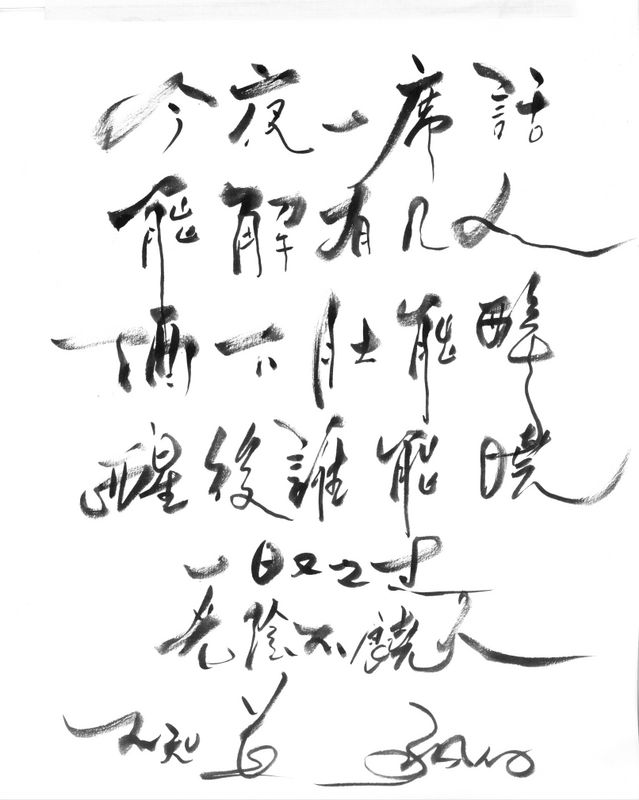 今夜一席話
能解有几人
酒下肚能醉
醒後誰能曉
一日又之过
光陰不饒人
不知道